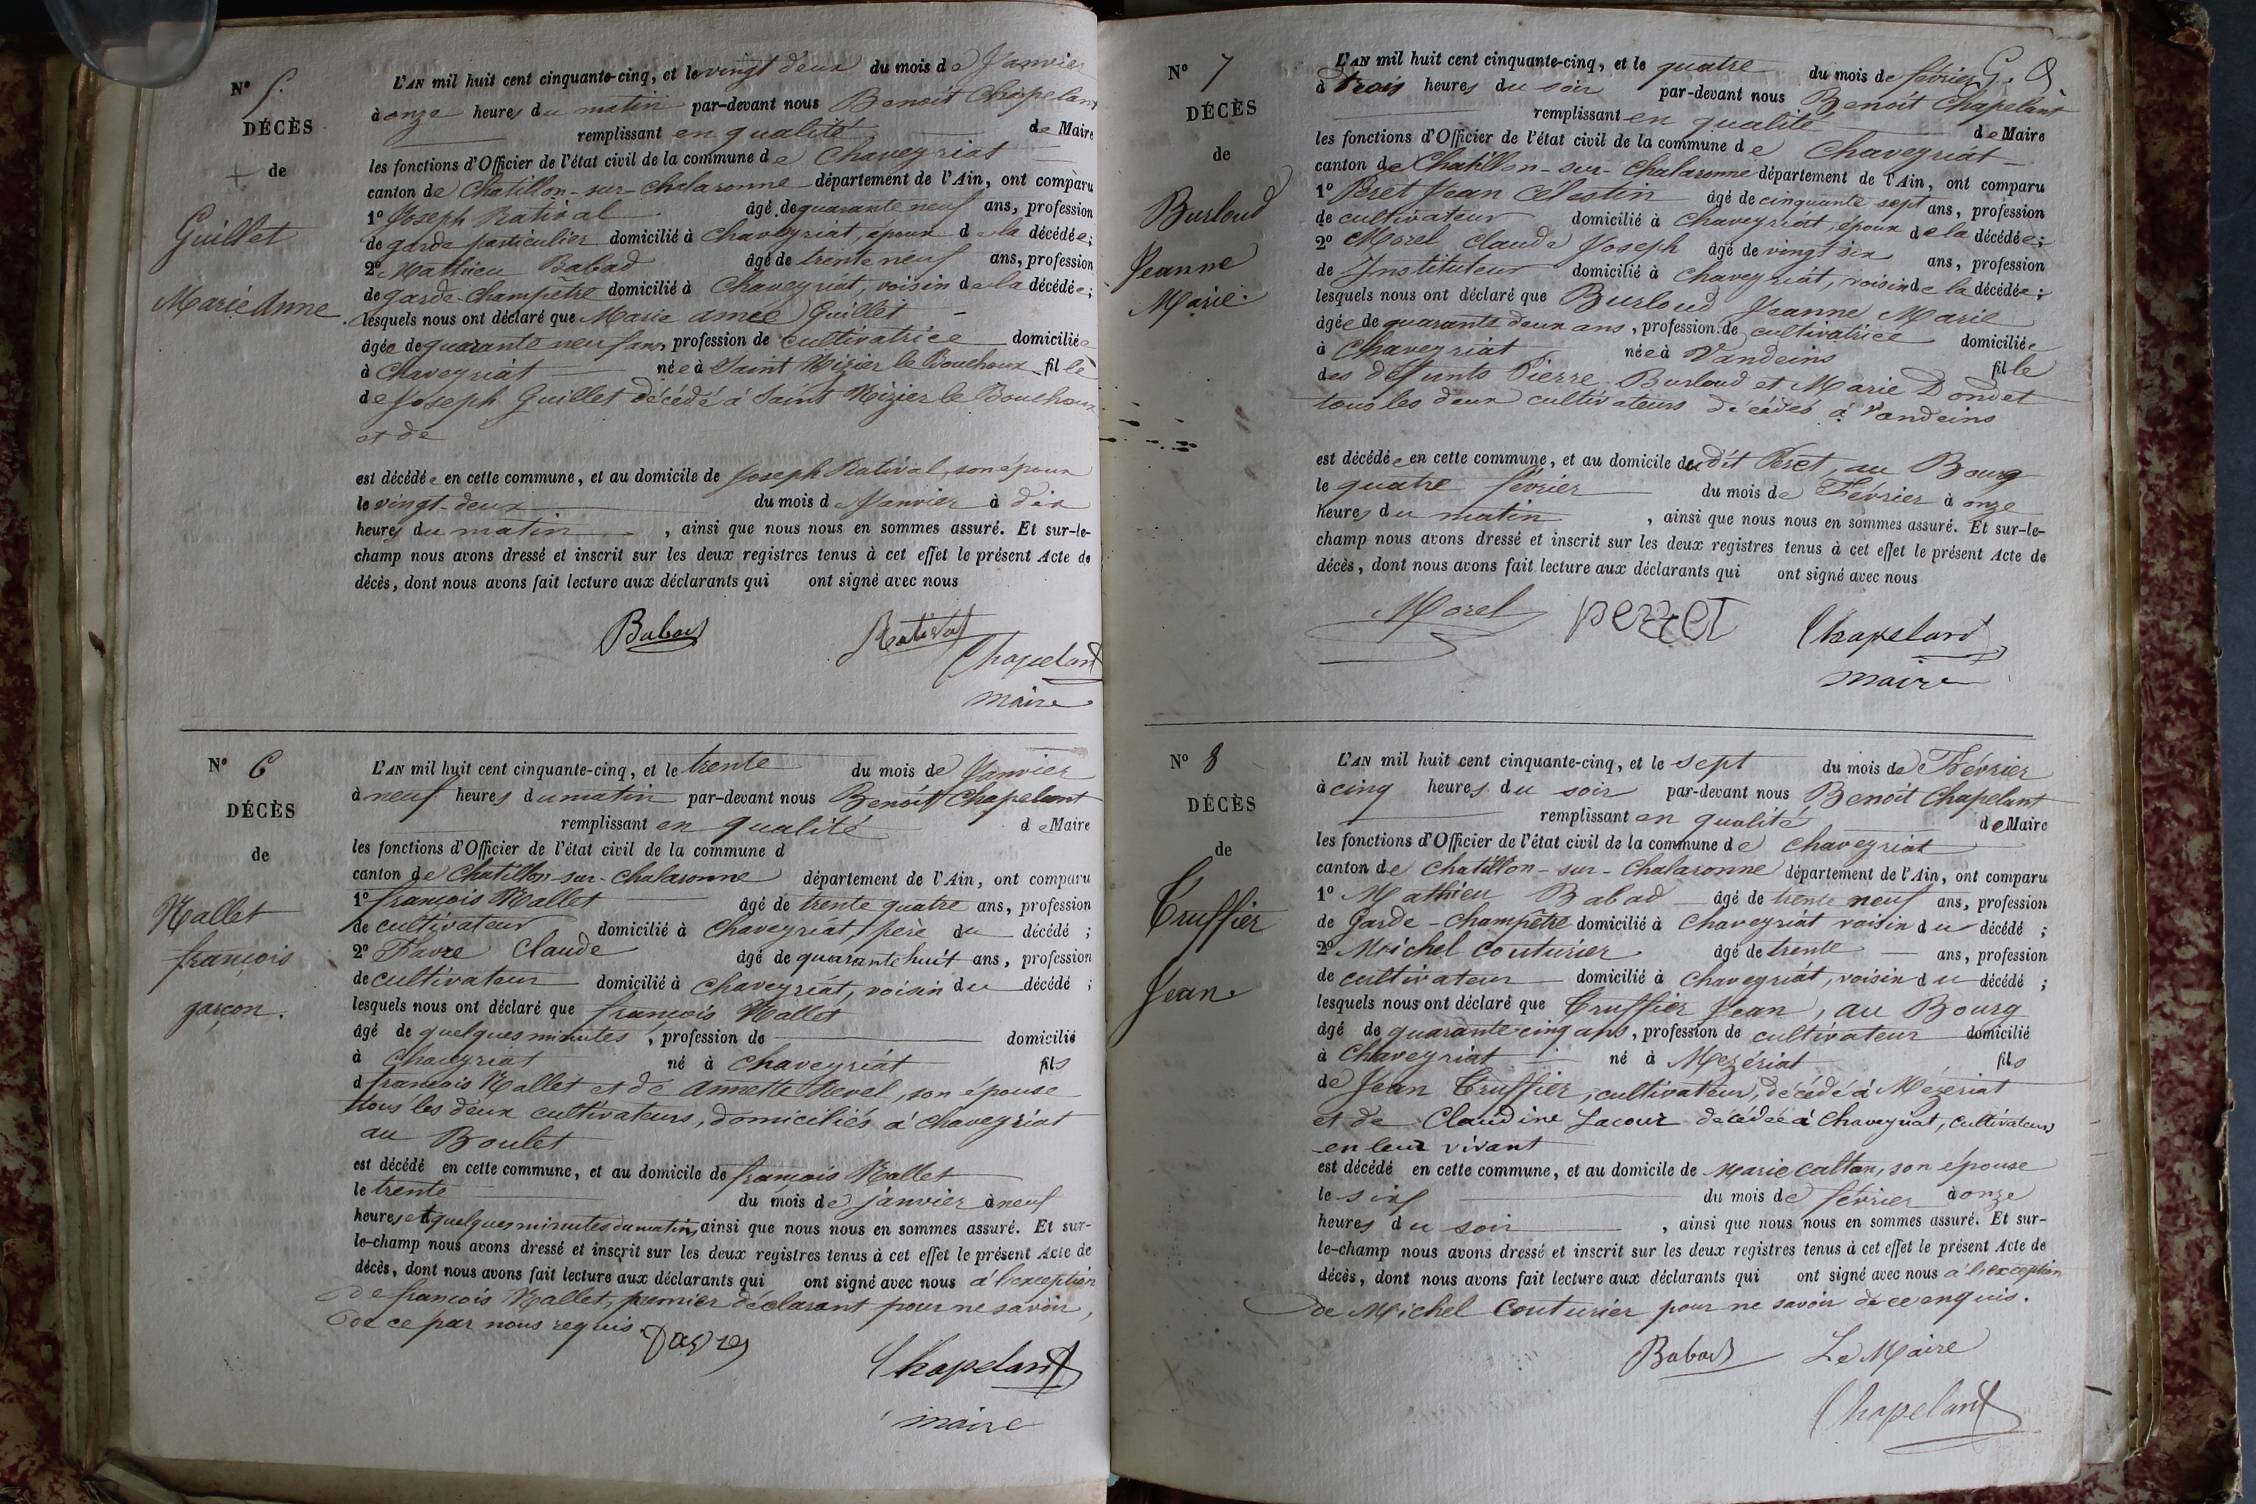 N° 5.
DÉCÈS
de
Guillet
Marie Anne
L'AN mil huit cent cinquante-cinq, et le vingt deux du mois de Janvier
à onze heures du matin par-devant nous Benoît Chapelant
remplissant en qualité de Maire
les fonctions d'Officier de l'état civil de la commune de Chaveyriat
canton de Chatillon-sur-Chalaronne département de l'Ain, ont comparu
1° Joseph Ratival âgé de quarante neuf ans, profession
de garde particulier domicilié à Chaveyriat, époux de la décédée;
2° Mathieu Babad âgé de trente neuf ans, profession
de garde-champêtre domicilié à Chaveyriat, voisin de la décédée;
lesquels nous ont déclaré que Marie Guillet
âgée de quarante neuf ans, profession de cultivatrice domiciliée
à Chaveyriat née à Saint Nizier le Bouchoux fille
de Joseph Guillet décédé à Saint Nizier le Bouchoux
et de
est décédée en cette commune, et au domicile de Joseph Ratival, son époux
le vingt-deux du mois de Janvier à dix
heures du matin, ainsi que nous nous en sommes assuré. Et sur-le-
champ nous avons dressé et inscrit sur les deux registres tenus à cet effet le présent Acte de
décès, dont nous avons fait lecture aux déclarants qui ont signé avec nous
Babad Ratival
Chapelant
maire
N° 6
DÉCÈS
de
Mallet
françois
garçon.
L'AN mil huit cent cinquante-cinq, et le trente du mois de Janvier
à neuf heures du matin par-devant nous Benoît Chapelant
remplissant en qualité de Maire
les fonctions d'Officier de l'état civil de la commune d
canton de Chatillon-sur-Chalaronne département de l'Ain, ont comparu
1° françois Mallet âgé de trente quatre ans, profession
de cultivateur domicilié à Chaveyriat, père du décédé;
2° Favre Claude âgé de quarante huit ans, profession
de cultivateur domicilié à Chaveyriat, voisin du décédé;
lesquels nous ont déclaré que françois Mallet
âgé de quelques minutes, profession de domicilié
à Chaveyriat né à Chaveyriat fils
d françois Mallet et de Annette son épouse
tous les deux cultivateurs, domiciliés à Chaveyriat
au Boulet
est décédé en cette commune, et au domicile de françois Mallet
le trente du mois de janvier à neuf
heures et quelques minutes du matin, ainsi que nous nous en sommes assuré. Et sur-
le-champ nous avons dressé et inscrit sur les deux registres tenus à cet effet le présent Acte de
décès, dont nous avons fait lecture aux déclarants qui ont signé avec nous à l'exception
de françois Mallet, premier déclarant pour ne savoir,
de ce par nous requis.
Chapelant
maire
N° 7
DÉCÈS
de
Burloud
Jeanne
Marie.
L'AN mil huit cent cinquante-cinq, et le quatre du mois de février
à trois heures du soir par-devant nous Benoît Chapelant
remplissant en qualité de Maire
les fonctions d'Officier de l'état civil de la commune de Chaveyriat
canton de Chatillon-sur-Chalaronne département de l'Ain, ont comparu
1° Peret Jean Célestin âgé de cinquante sept ans, profession
de cultivateur domicilié à Chaveyriat, époux de la décédée;
2° Morel Claude Joseph âgé de vingt six ans, profession
de Instituteur domicilié à Chaveyriat, voisin de la décédée;
lesquels nous ont déclaré que Burloud Jeanne Marie
âgée de quarante deux ans, profession de cultivatrice domiciliée
à Chaveyriat née à Vandeins fille
des défunts Pierre Burloud et Marie Dondet
tous les deux cultivateurs décédés à Vandeins
est décédée en cette commune, et au domicile dudit Peret, au Bourg
le quatre février du mois de Février à onze
heures du matin, ainsi que nous nous en sommes assuré. Et sur-le-
champ nous avons dressé et inscrit sur les deux registres tenus à cet effet le présent Acte de
décès, dont nous avons fait lecture aux déclarants qui ont signé avec nous
Morel perret Chapelant
maire
N° 8
DÉCÈS
de
Truffier
Jean.
L'AN mil huit cent cinquante-cinq, et le sept du mois de Février
à cinq heures du soir par-devant nous Benoît Chapelant
remplissant en qualité de Maire
les fonctions d'Officier de l'état civil de la commune de Chaveyriat
canton de Chatillon-sur-Chalaronne département de l'Ain, ont comparu
1° Mathieu Babad âgé de trente neuf ans, profession
de Garde-Champêtre domicilié à Chaveyriat voisin du décédé;
2° Michel Couturier âgé de trente ans, profession
de cultivateur domicilié à Chaveyriat, voisin du décédé;
lesquels nous ont déclaré que Truffier Jean, au Bourg
âgé de quarante-cinq ans, profession de cultivateur domicilié
à Chaveyriat né à Mézériat fils
de Jean Truffier, cultivateur, décédé à Mézériat
et de Claudine Lacour décédée à Chaveyriat, cultivateurs
en leur vivant
est décédé en cette commune, et au domicile de Marie Caltan, son épouse
le six du mois de février à onze
heures du soir, ainsi que nous nous en sommes assuré. Et sur-
le-champ nous avons dressé et inscrit sur les deux registres tenus à cet effet le présent Acte de
décès, dont nous avons fait lecture aux déclarants qui ont signé avec nous à l'exception
de Michel Couturier pour ne savoir de ce enquis.
Babad Le Maire
Chapelant